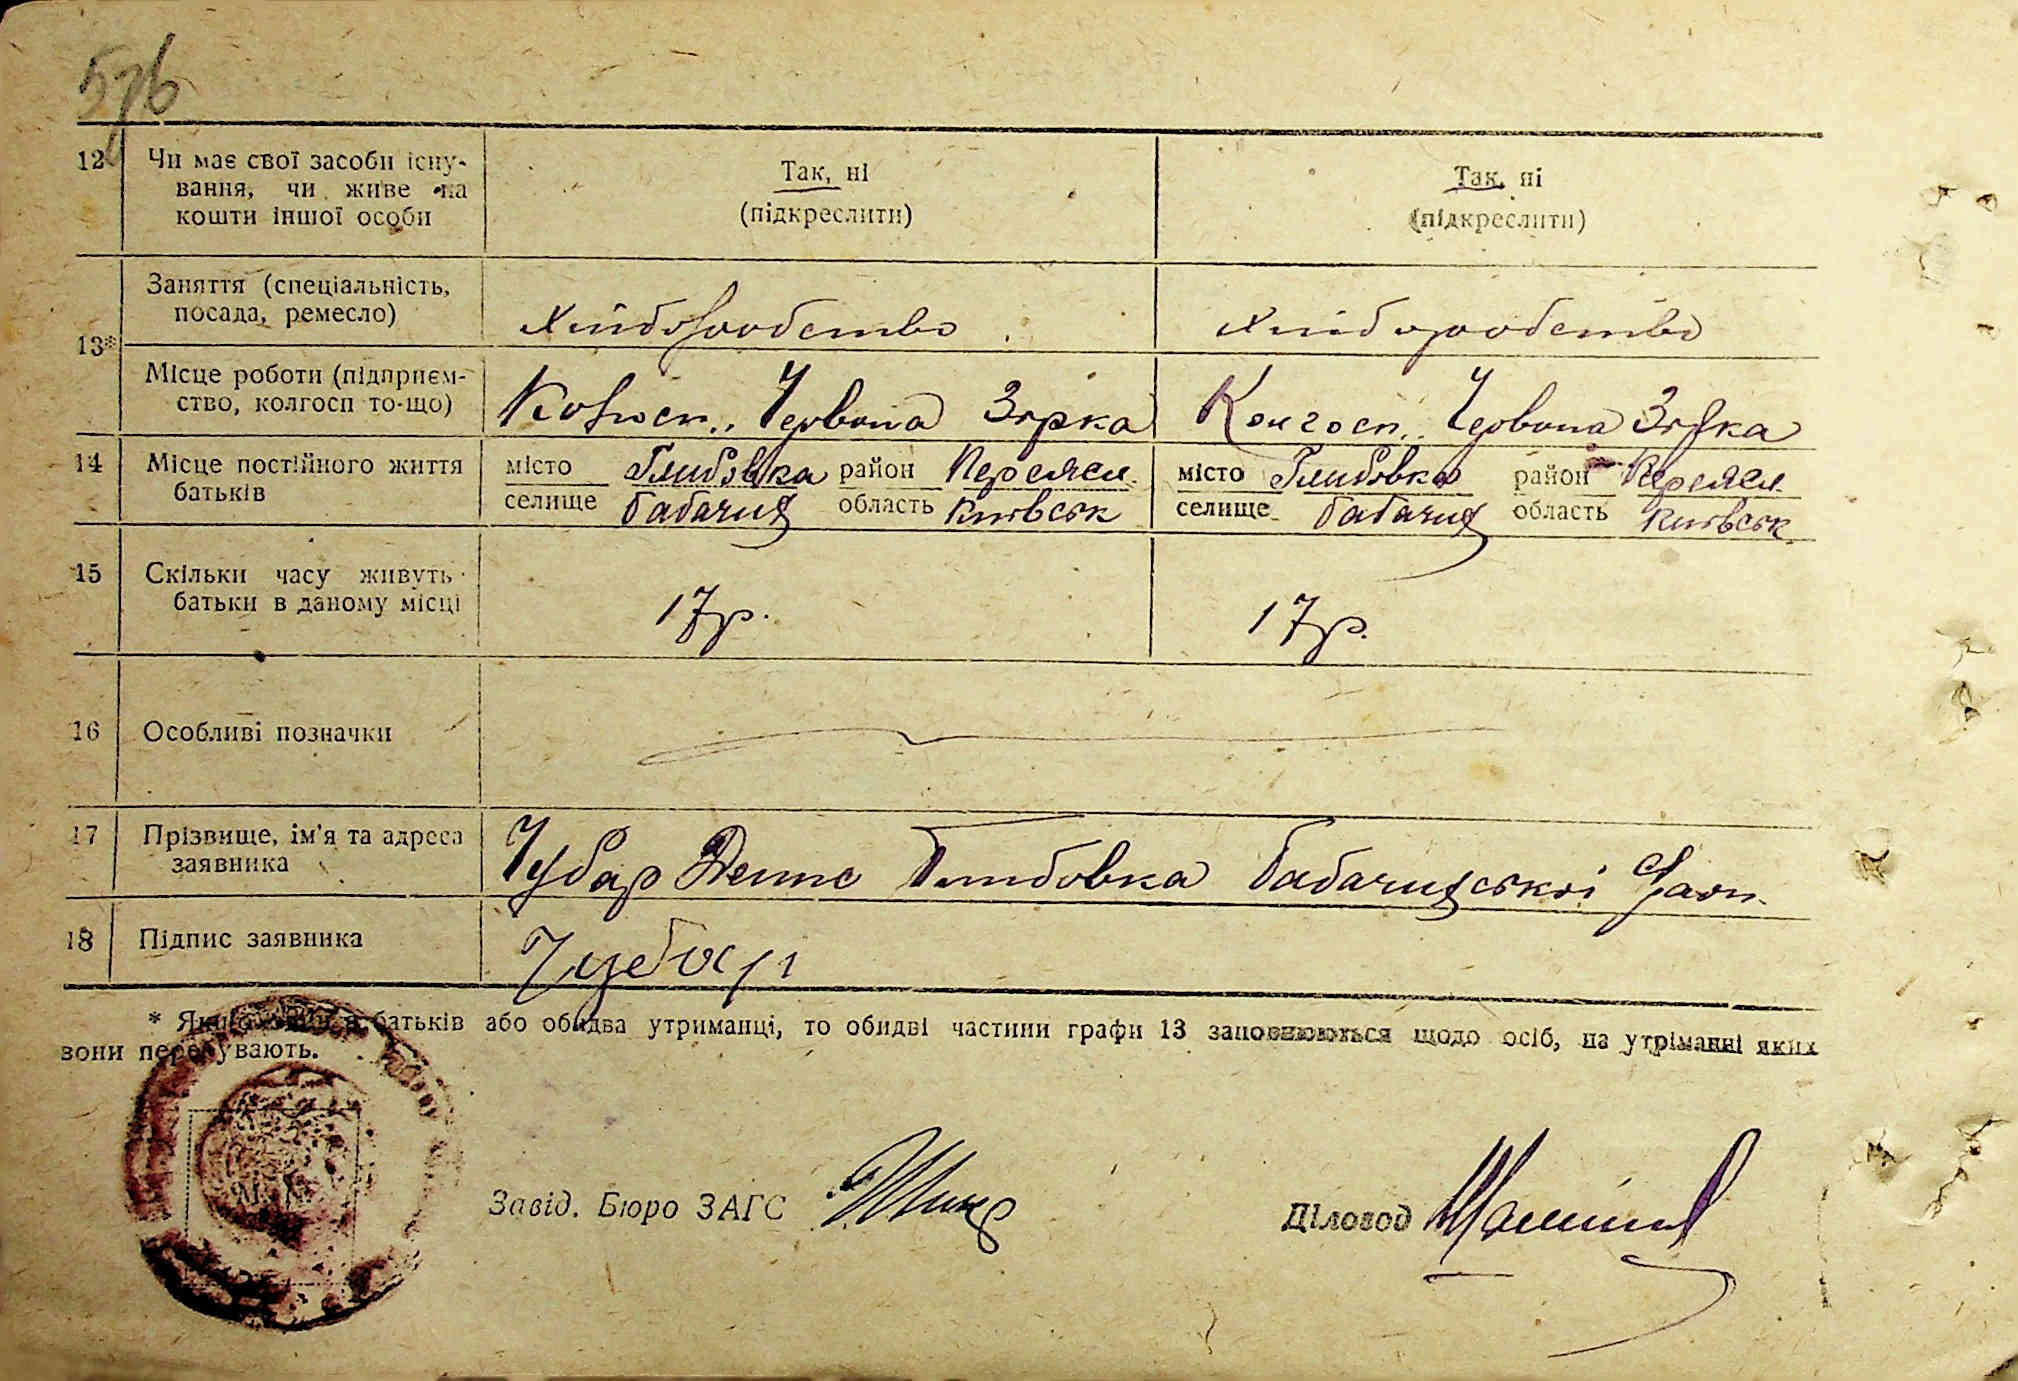 576
12 Чи має свої засоби існу- Так, ні Так, ні
вання, чи живе на (підкреслити) (підкреслити)
кошти іншої особи
13* Заняття (спеціальність, Хліборобство Хліборобство
посада, ремесло)
Місце роботи (підприєм- Колгосп „Червона Зорка Колгосп „Червона Зорка
ство, колгосп то-що)
14 Місце постійного життя місто Глибовка район Переясл. місто Глибовка район Переясл.
батьків селище бабачих область Київськ селище бабачих область Київськ
15 Скільки часу живуть 17р. 17р.
батьки в даному місці
16 Особливі позначки
17 Прізвище, ім'я та адреса Чубар Денис Глибовка бабачихської
заявника
18 Підпис заявника Чубар
* Якщо батьків або обидва утриманці, то обидві частини графи 13 заповнюються щодо осіб, на утріманні яких
вони перебувають.
Завід. Бюро ЗАГС Діловод